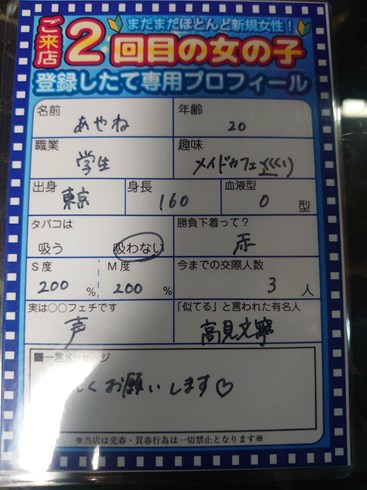 まだまだほとんど新規女性!
ご来店2回目の女の子
登録したて専用プロフィール
名前 あやね 年齢 20
職業 学生 趣味 メイドカフェ
出身 東京 身長 160 血液型 O型
タバコは 吸う 吸わない 勝負下着って? 赤
S度 200% M度 200% 今までの交際人数 3人
実は○○フェチです 声 「似てる」と言われた有名人 高見文寧
■一言メッセージ
しくお願いします♡
※当店は売春・買春行為は一切禁止となります※